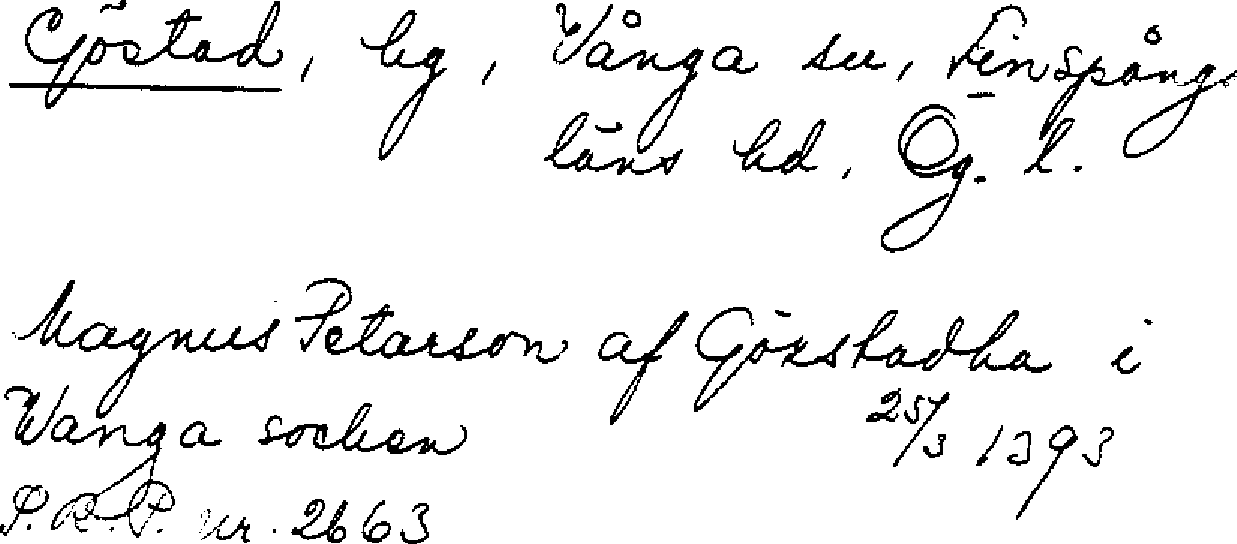 Göstad, by, Vånga sn, Finspångs
läns hd. Ög. l.
Magnus Petarson af Gökstadha i
Wanga sochen 25/3 1393
S.R.P. nr. 2663